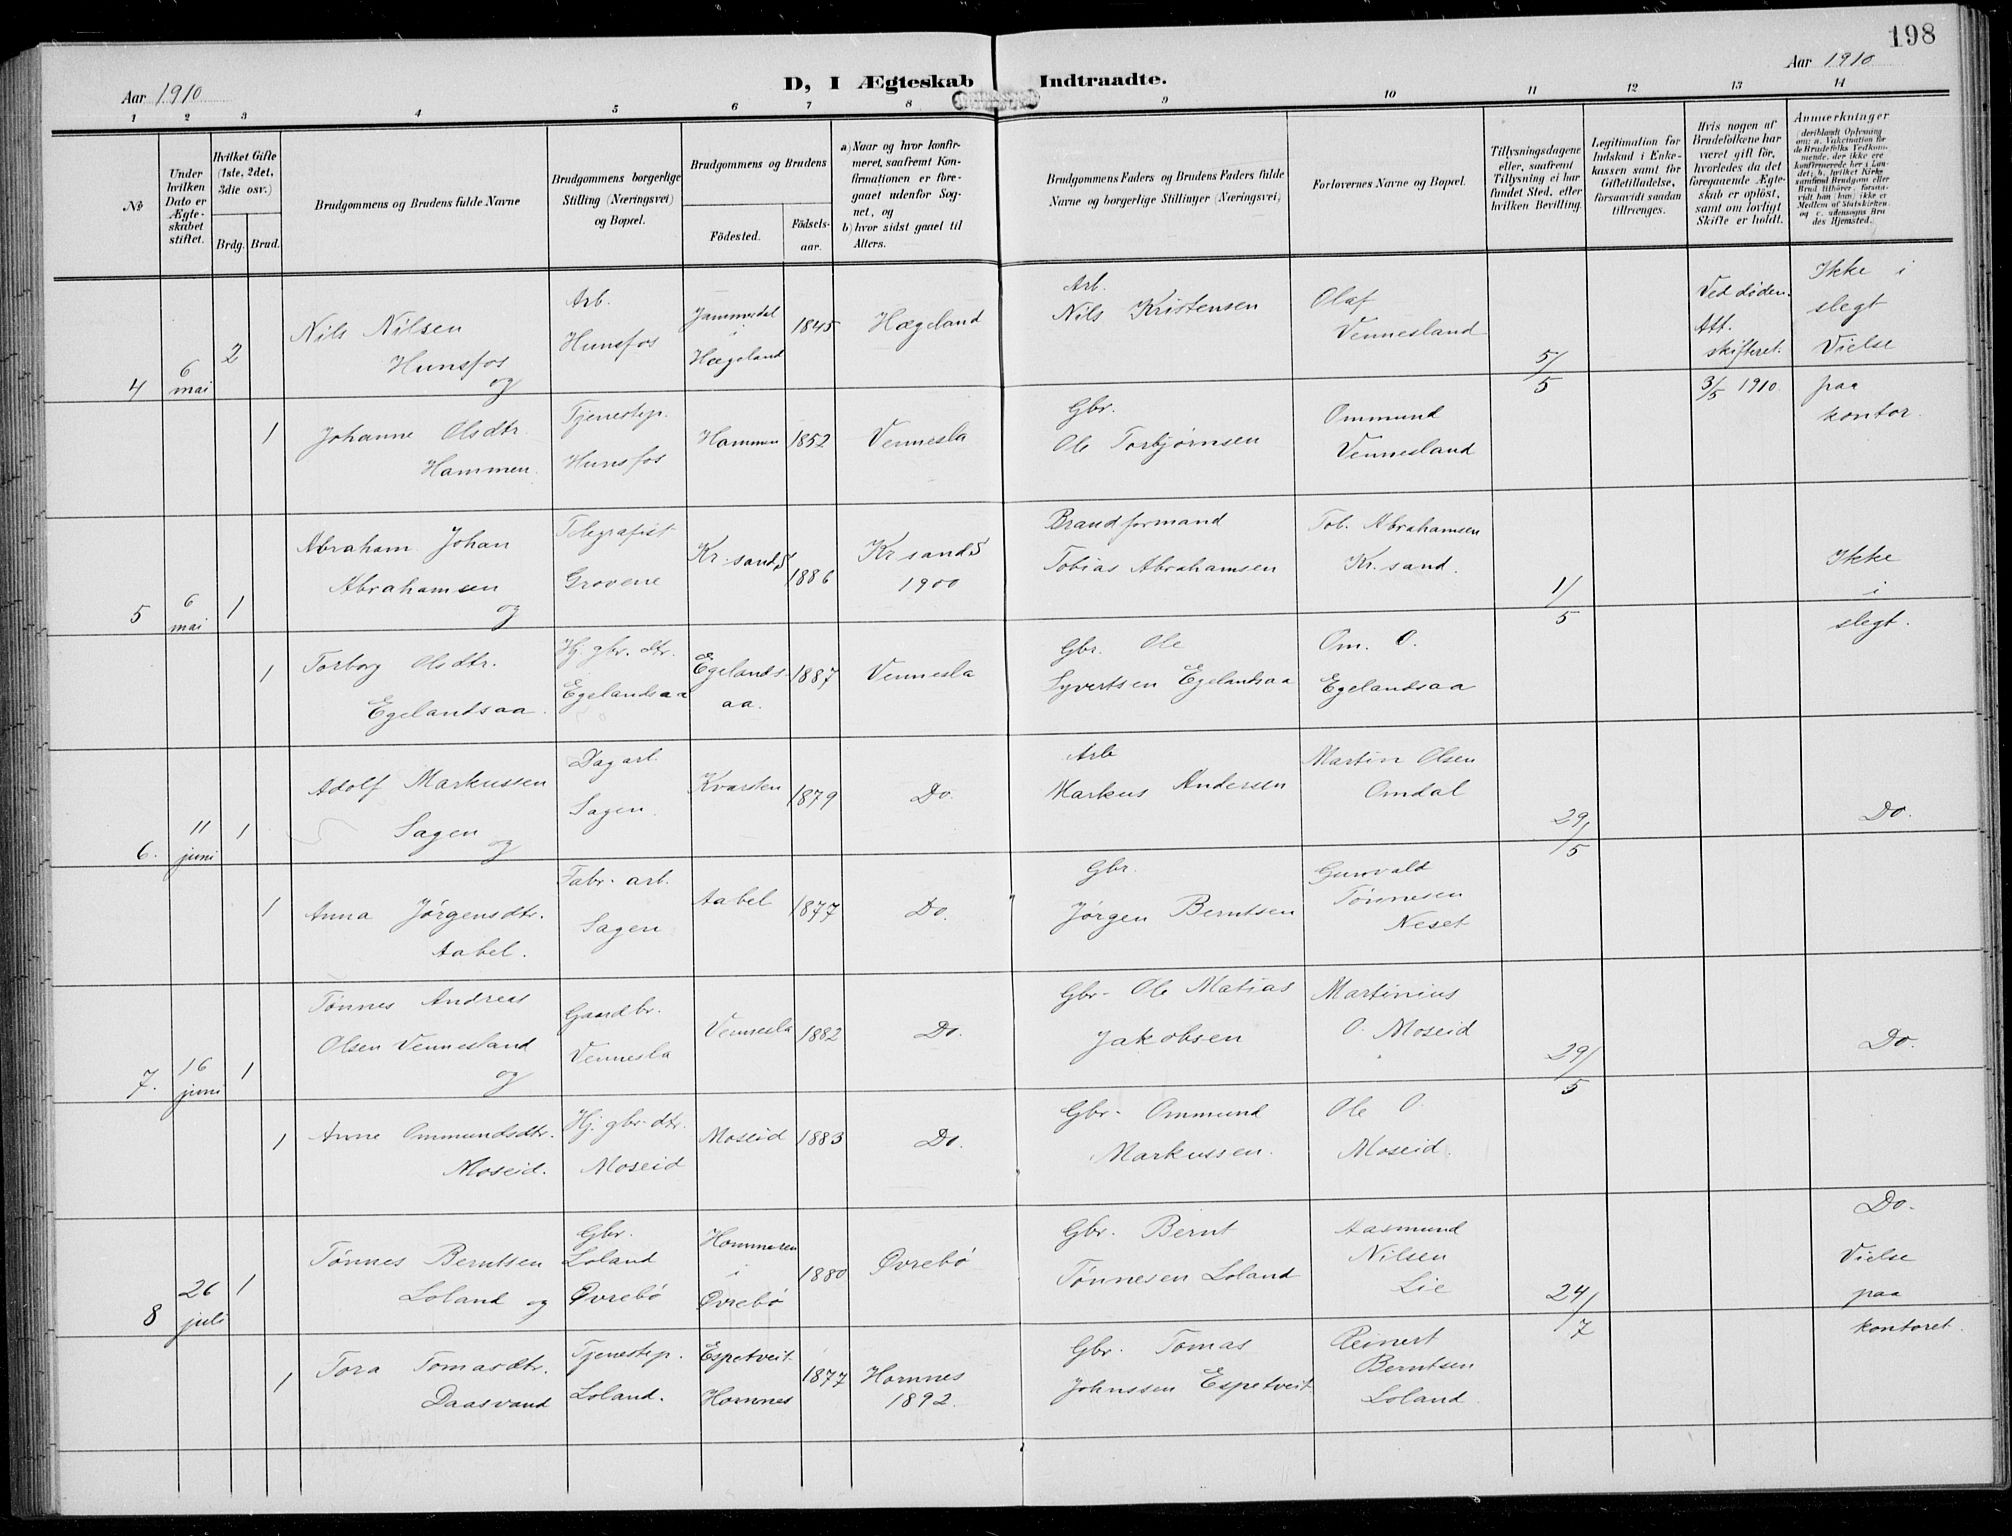 198
Aar 1910
D, I Ægteskab Indtraadte.
Aar 1910
1 2 3 4 5 6 7 8 9 10 11 12 13 14
№
Under hvilken Dato er Ægteskabet stiftet.
Hvilket Gifte (1ste, 2det, 3die osv.)
Brdg. Brud.
Brudgommens og Brudens fulde Navne
Brudgommens borgerlige Stilling (Næringsvei) og Bopæl.
Brudgommens og Brudens
Födested.
Födselsaar.
a) Naar og hvor konfirmeret, saafremt Konfirmationen er foregaaet udenfor Sognet, og
b) hvor sidst gaaet til Alters.
Brudgommens Faders og Brudens Faders fulde Navne og borgerlige Stillinger (Næringsvei)
Forlovernes Navne og Bopæl.
Tillysningsdagene eller, saafremt Tillysning ei har fundet Sted, efter hvilken Bevilling.
Legitimation for Indskud i Enkekassen samt for Giftetilladelse, forsaavidt saadan tiltrænges.
Hvis nogen af Brudefolkene har været gift før, hvorledes da det foregaaende Ægteskab er opløst, samt om lovligt Skifte er holdt.
Anmerkninger
(deriblandt Oplysning om: a. Vakcination for de Brudefolks Vedkommende, der ikke ere konfirmerede her i Landet; b. hvilket Kirkesamfund Brudgom eller Brud tilhörer, forsaavidt han (hun) ikke er Medlem af Statskirken, og c. udensogns Brudes Hjemsted.
4
6 mai
2
Nils Nilsen
Hunsfos
og
Arb.
Hunsfos
i
Hægeland
1845
Hægeland
Arb.
Nils Kristensen
Olaf
Vennesland
5/5
Ved døden.
Att.
skifteret.
3/5 1910.
Ikke i
slegt
Vielse
paa
kontor.
1
Johanne Olsdtr.
Hammen.
Tjenestep.
Hunsfos
Hammen
1852
Vennesla
Gbr.
Ole Torbjørnsen
Ommund
Vennesland
5
6 mai
1
Abraham Johan
Abrahamsen
og
Telegrafist
Grovene
Kr.sand S
1886
Kr sand S
1900
Brandformand
Tobias Abrahamsen
Tob. Abrahamsen
Kr. sand.
1/5
Ikke
i
slegt.
1
Torborg Olsdtr.
Egelandsaa.
Hj. gbr. dtr.
Egelandsaa
Egelands-
aa.
1887
Vennesla
Gbr. Ole
Syvertsen Egelandsaa
Om. O.
Egelandsaa
6.
11 juni
1
Adolf Markussen
Sagen
og
Dagarb.
Sagen.
Kvarsten
1879
Do.
Arb
Markus Andersen
Martin Olsen
Omdal
29/5
Do.
1
Anna Jørgensdtr.
Aabel.
Fabr. arb.
Sagen
Aabel
1877
Do.
Gbr.
Jørgen Berntsen
Gunvald
Tønnesen
Neset
7.
16 juni
1
Tønnes Andreas
Olsen Vennesland
og
Gaardbr.
Vennesla
Vennesla
1882
Do.
Gbr. Ole Matias
Jakobsen
Martinius
O. Moseid
29/5
Do.
1
Anne Ommundsdtr.
Moseid.
Hj. gbr. dtr.
Moseid
Moseid
1883
Do.
Gbr. Ommund
Markussen.
Ole O.
Moseid.
8
26 juli
1
Tønnes Berntsen
Loland og
Gbr.
Loland
Øvrebø
Hommeren
i
Øvrebø
1880
Øvrebø
Gbr. Bernt
Tønnesen Loland
Aasmund
Nilsen
Lie
24/7
Do.
Vielse
paa
kontoret.
1
Tora Tomasdtr.
Daasvand
Tjenestep.
Loland.
Espetveit
Hornnes
1877
Hornnes
1892.
Gbr. Tomas
Johnssen Espetveit
Reinert
Berntsen
Loland.